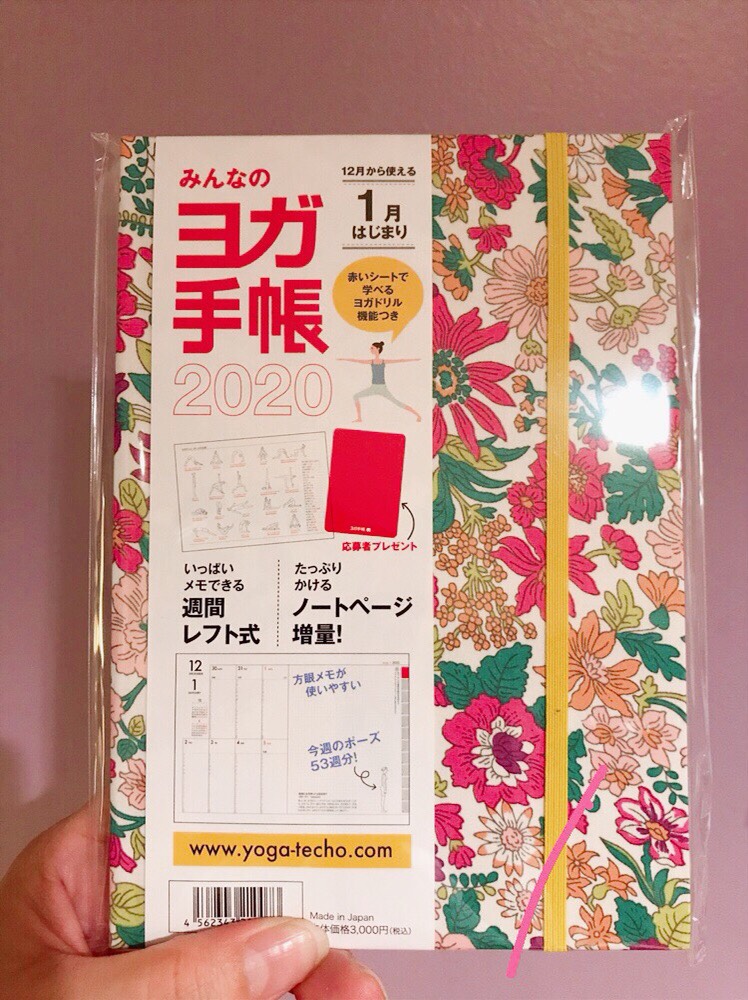 みんなの
ヨガ
手帳
2020
12月から使える
1月
はじまり
赤いシートで
学べる
ヨガドリル
機能つき
応募者プレゼント
いっぱい
メモできる
週間
レフト式
たっぷり
かける
ノートページ
増量!
12
1
方眼メモが
使いやすい
今週のポーズ
53週分!
www.yoga-techo.com
Made in Japan
体価格3,000円(税込)